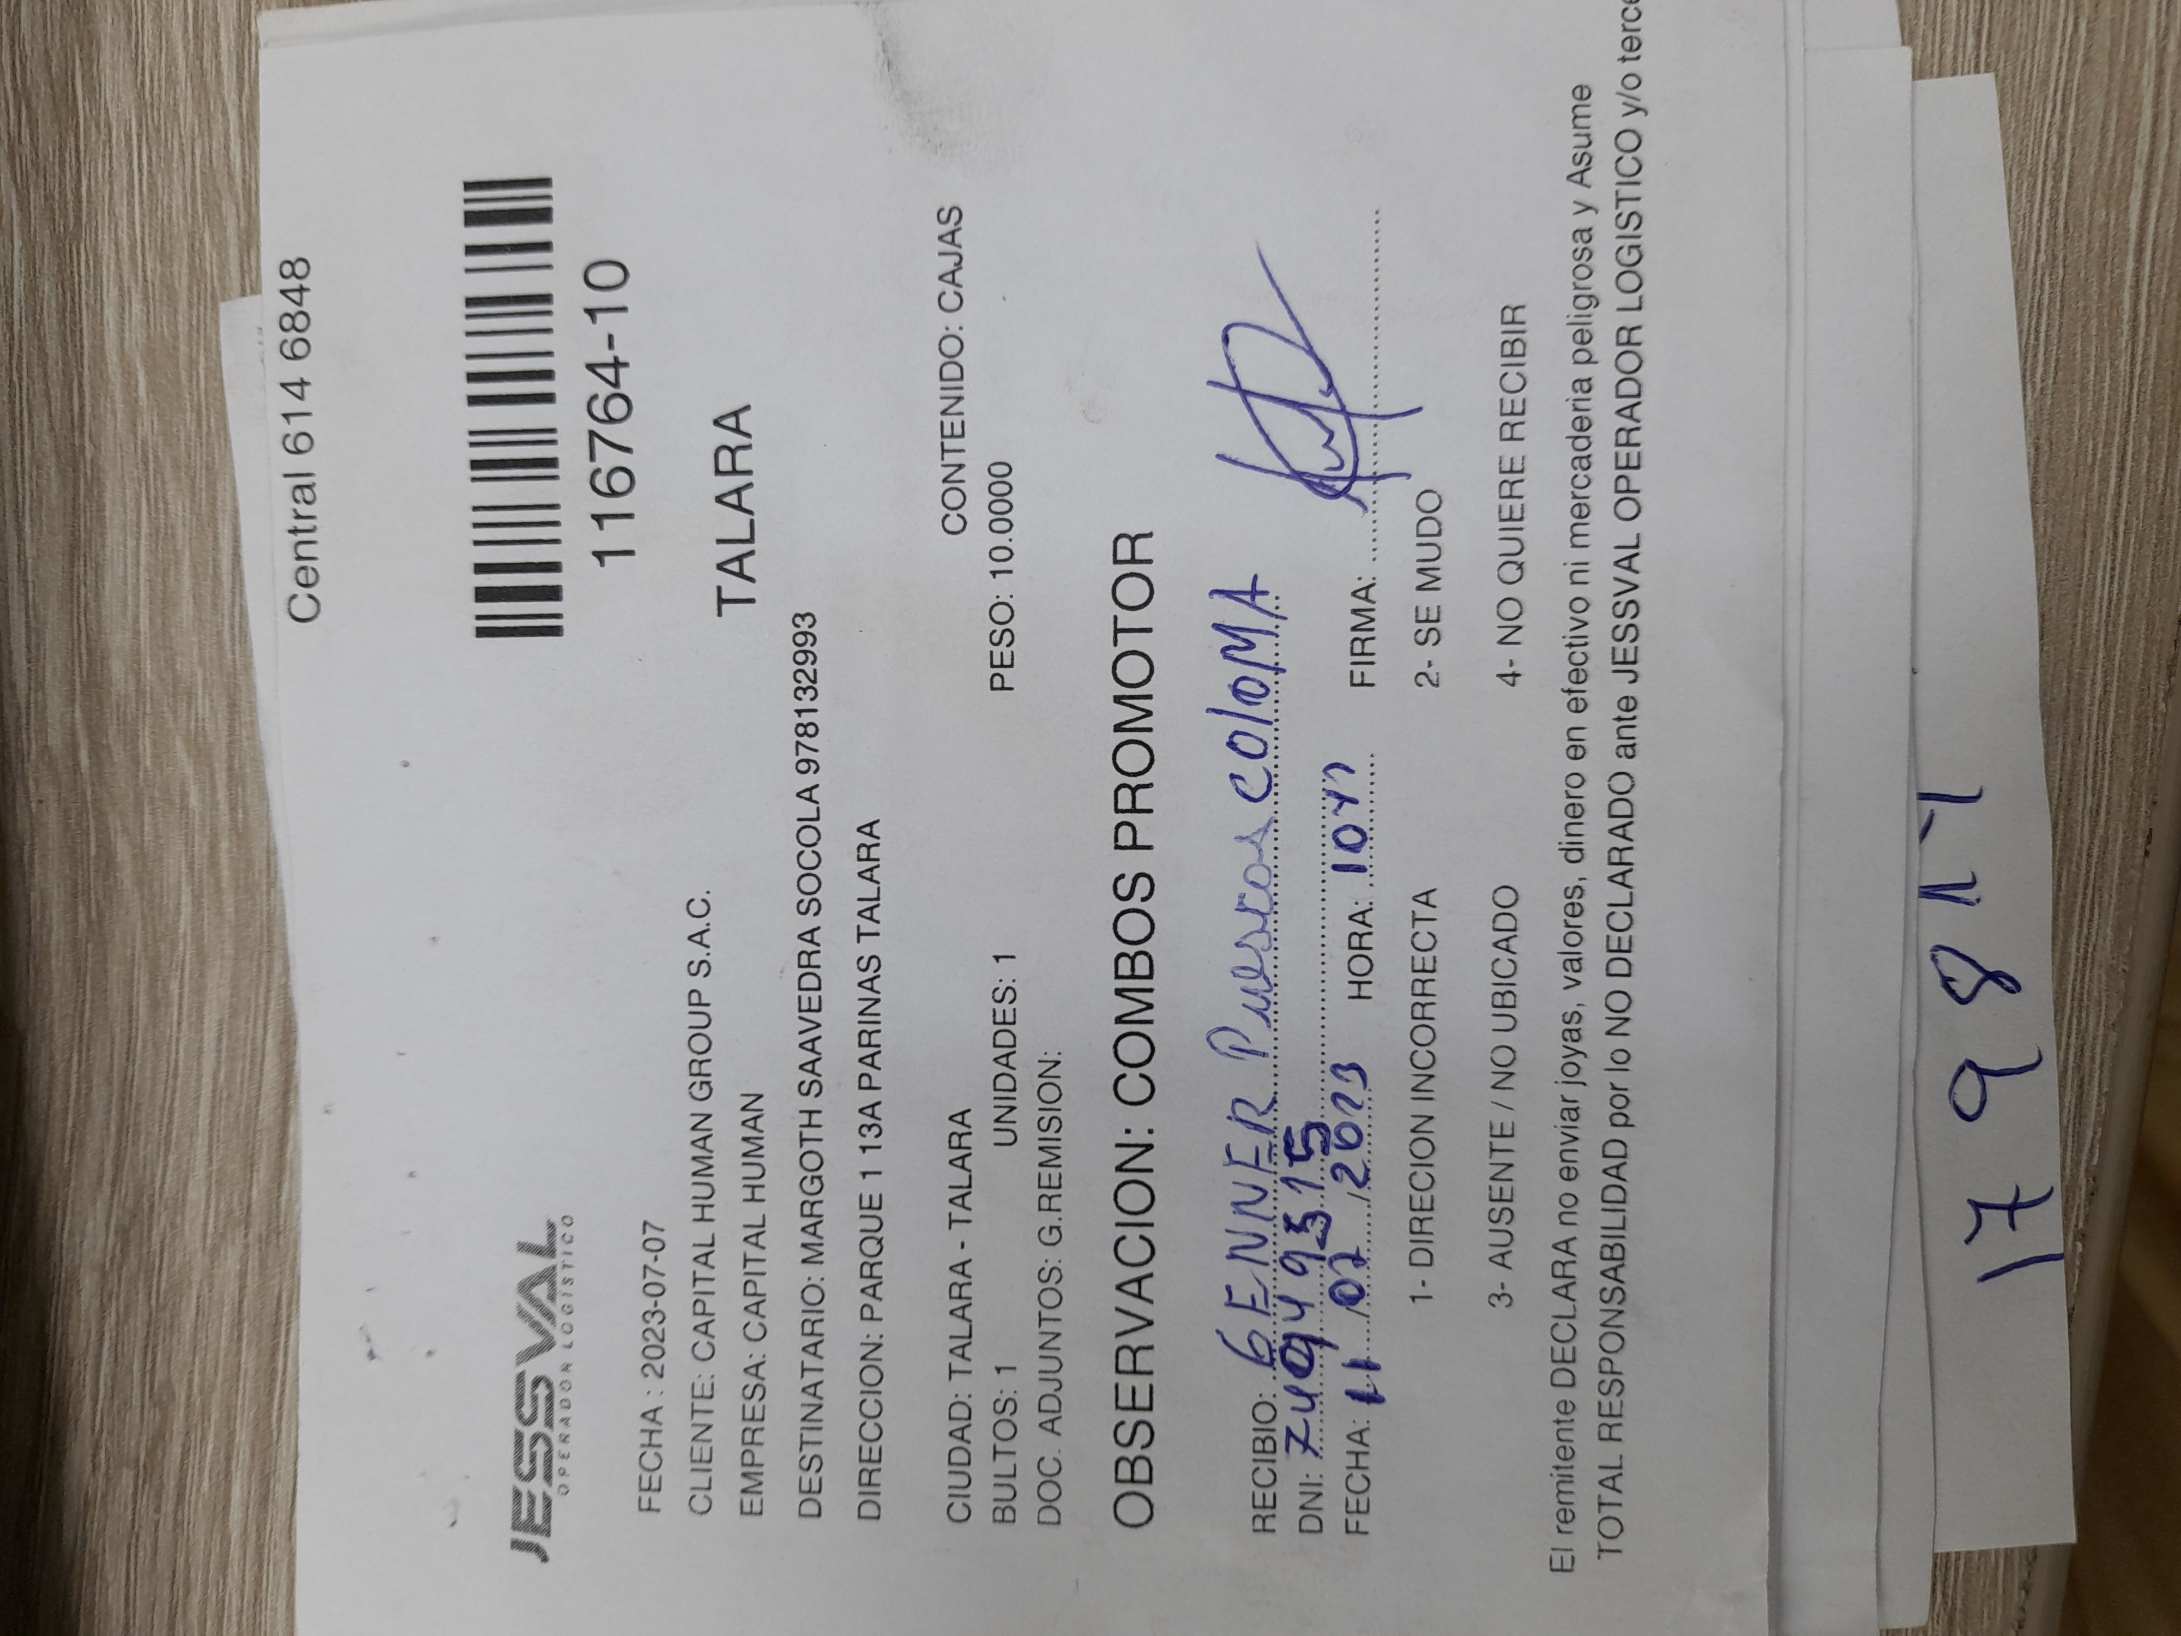 Central 614 6848
JESSVAL
OPERADOR LOGISTICO
116764-10
FECHA : 2023-07-07
CLIENTE: CAPITAL HUMAN GROUP S.A.C.
EMPRESA: CAPITAL HUMAN
TALARA
DESTINATARIO: MARGOTH SAAVEDRA SOCOLA 978132993
DIRECCION: PARQUE 1 13A PARINAS TALARA
CIUDAD: TALARA - TALARA CONTENIDO: CAJAS
BULTOS: 1 UNIDADES: 1 PESO: 10.0000
DOC. ADJUNTOS: G.REMISION:
OBSERVACION: COMBOS PROMOTOR
RECIBIO: GENNER ColoMA
DNI:
FECHA: 11 / 07 / 2023 HORA: FIRMA:
1- DIRECION INCORRECTA 2- SE MUDO
3- AUSENTE / NO UBICADO 4- NO QUIERE RECIBIR
El remitente DECLARA no enviar joyas, valores, dinero en efectivo ni mercaderia peligrosa y Asume
TOTAL RESPONSABILIDAD por lo NO DECLARADO ante JESSVAL OPERADOR LOGISTICO y/o terce